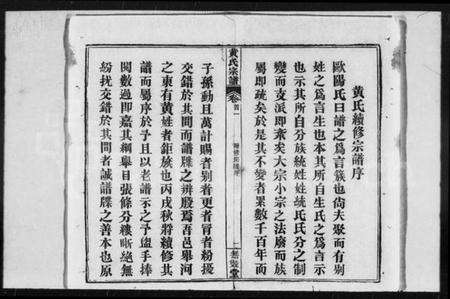 黃氏續修宗譜序
歐陽氏曰譜之為言簇也尚夫聚而有別
姓之為言生也本其所自生氏之為言示
也示其所自分族統姓姓統氏氏分之制
變而支派即紊矣大宗小宗之法廢而族
屬即疏矣於是其不變者累數千百年而
黃氏宗譜
卷首一
無雙堂
子孫動且萬計賜者別者更者冒者紛擾
交錯於其間而譜牒之辨殷焉吾邑舉河
之東有黃姓者鉅族也丙戌秋將續修其
譜而屬序於予且以老譜示之予盥手捧
閱數過即嘉其綱舉目張條分縷晰絕無
紛扰交錯於其間者誠譜牒之善本也原